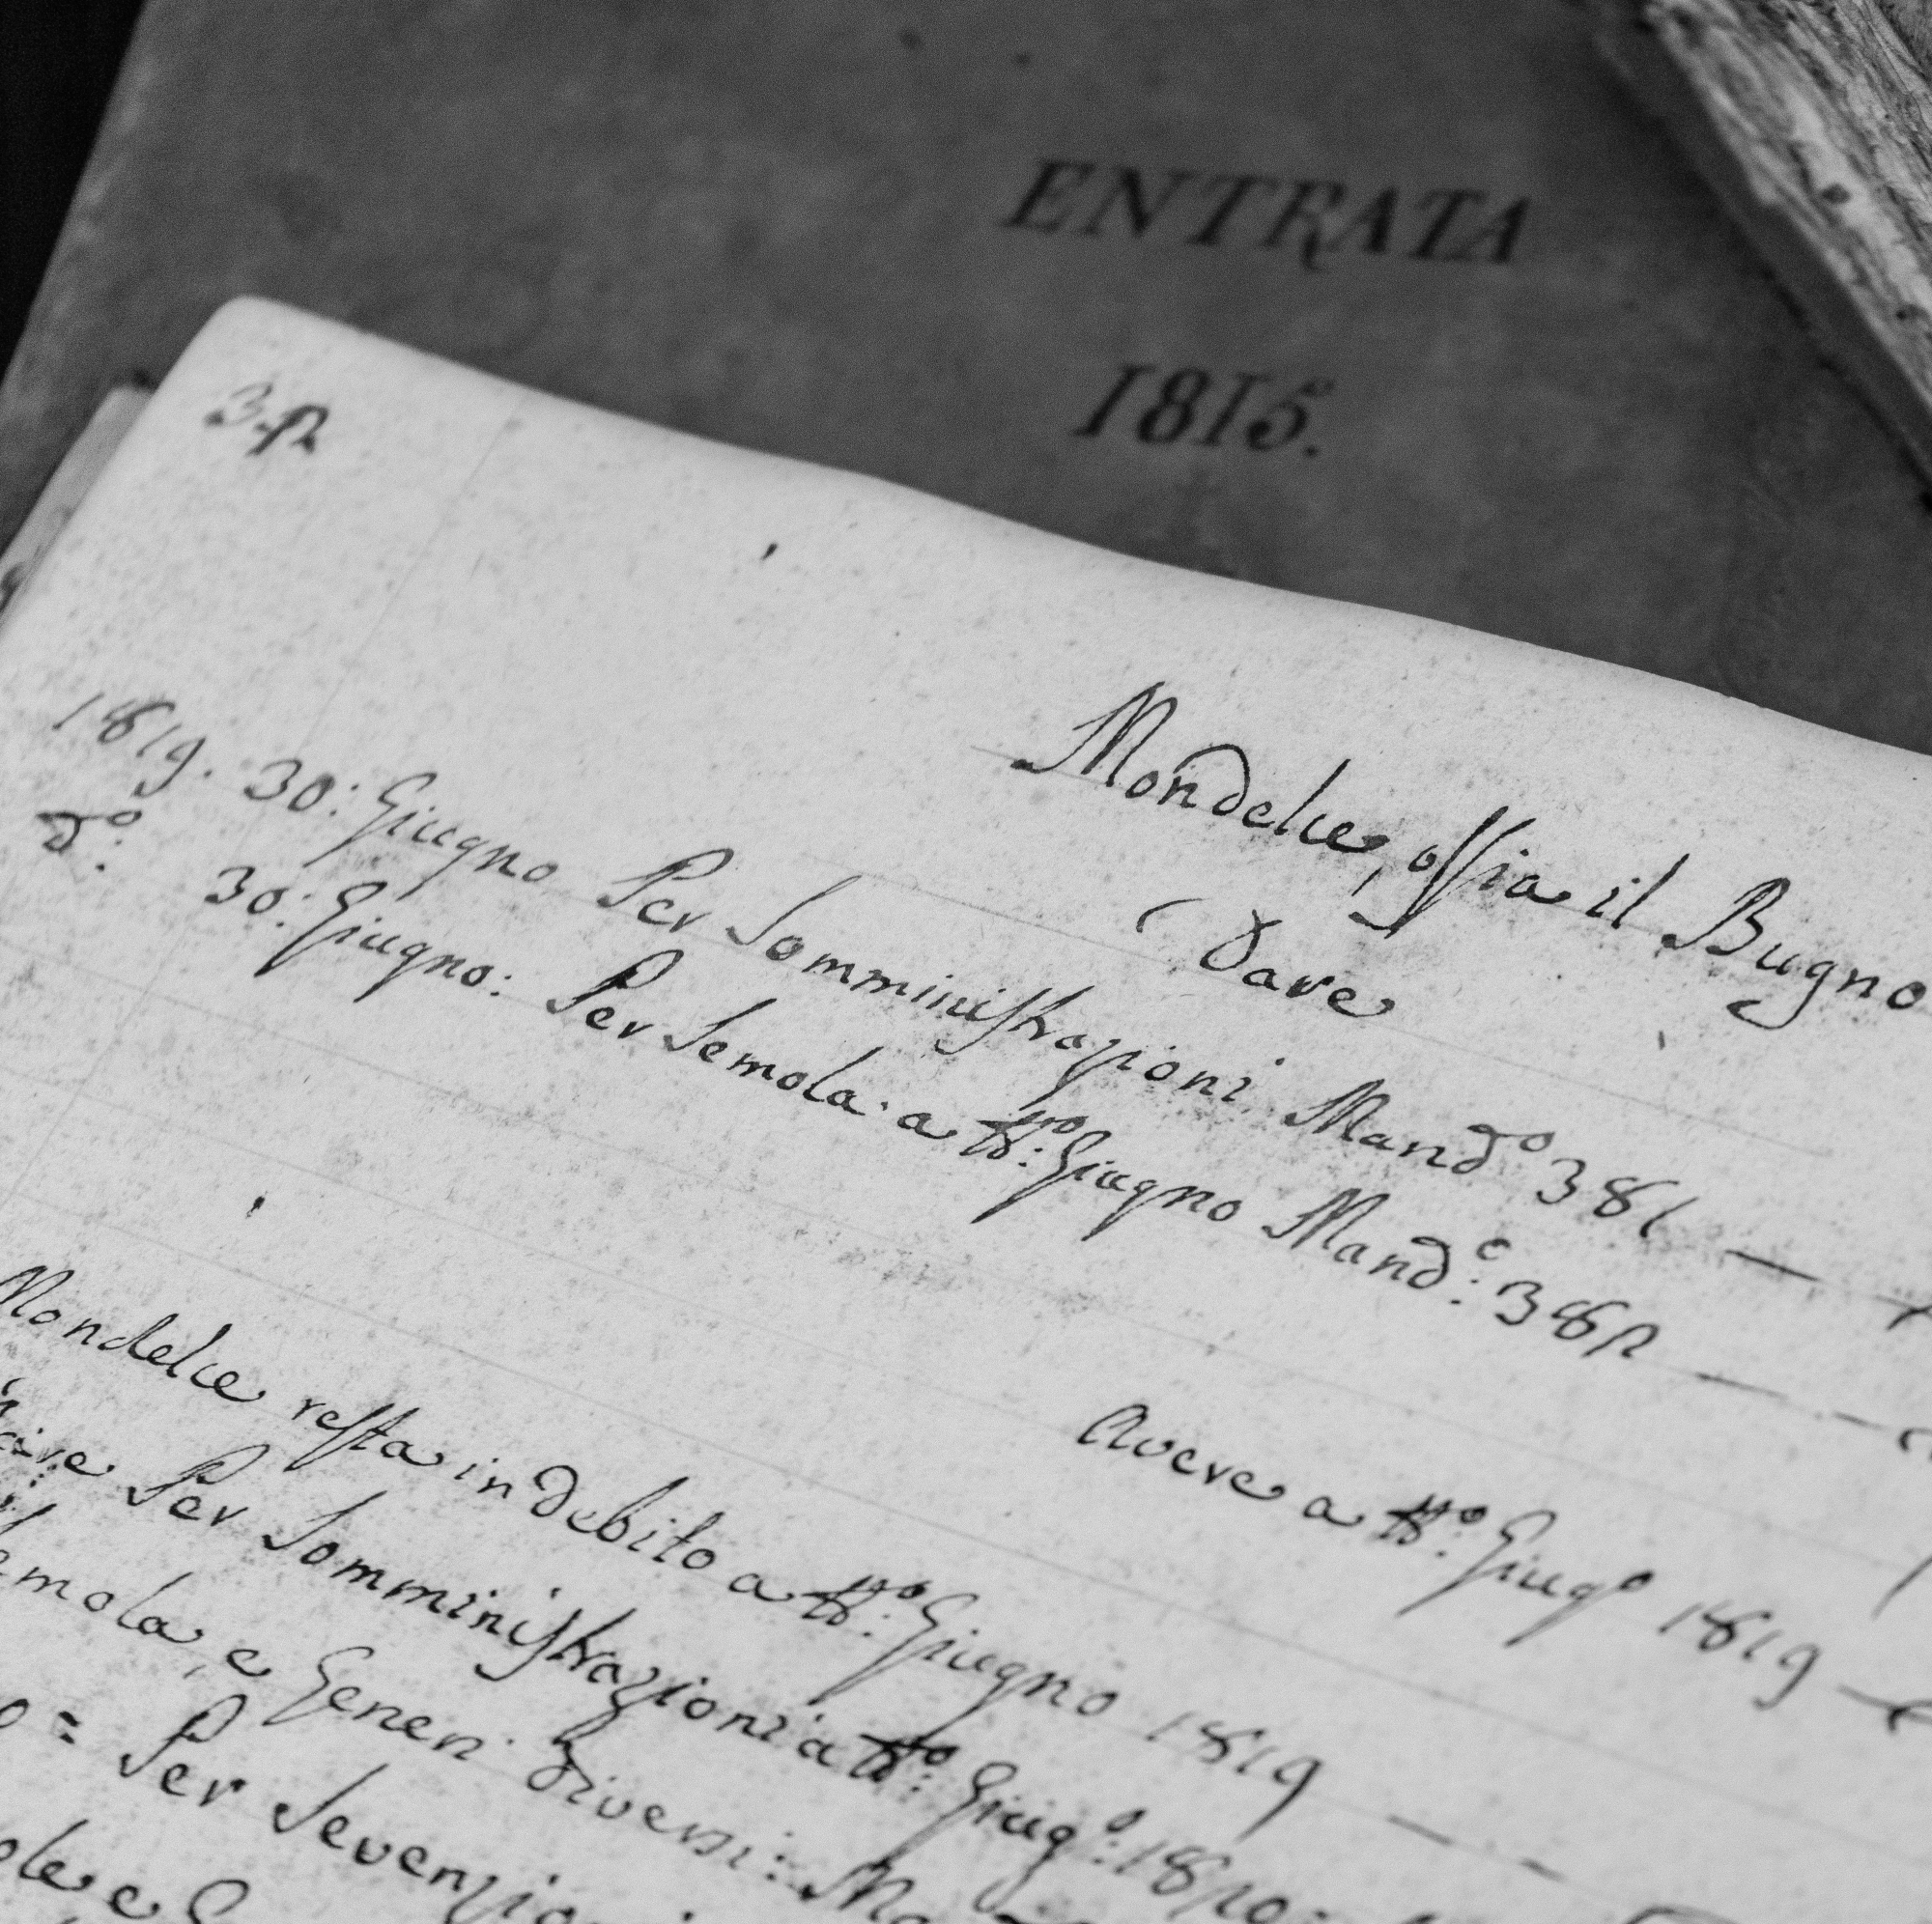 ENTRATA
1815.
32
Mondelce, ossia il Bugno
Dare
1819. 30: Giugno Per Somministrazioni Mand.º 381 —
d.º: 30: Giugno: Per Semola a tt.º: Giugno Mand.º: 382 — —
Avere a tt.º: Giug.º 1819 —
Mondelce resta in debito a tt.º: Giugno 1819 — —
Per Somministrazioni a tt.º: Giug.º: 1820:
e Generi diversi:
= Per
e